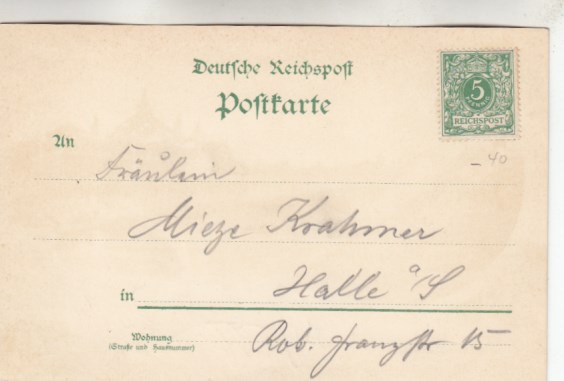 Deutsche Reichspost
Postkarte
5
REICHSPOST
– 40
An
Fräulein
Mieze Krahmer
in Halle a/S
Wohnung
(Straße und Hausnummer)
Rob. Franzstr 15